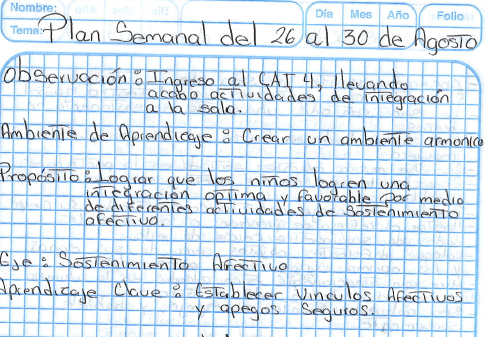 Nombre:
Día Mes Año Folio
Tema: Plan Semanal del 26 al 30 de Agosto
Observación: Ingreso al CAI 4, llevando
acabo actividades de integración
a la sala.
Ambiente de Aprendicaje: Crear un ambiente armonico
Proposito: Lograr que los niños logren una
integración optima y favorable por medio
de diferentes actividades de Sostenimiento
afectivo.
Eje: Sostenimiento Afectivo
Aprendicaje Clave: Establecer Vinculos Afectivos
y apegos Seguros.